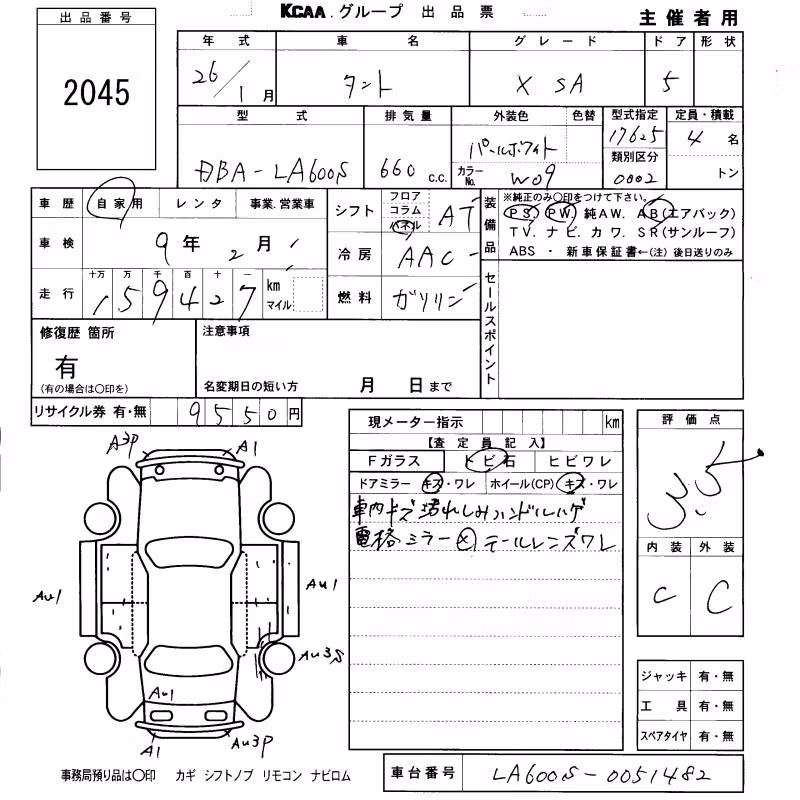 出品番号
2045
KCAA.グループ 出品票 主催者用
年式 車名 グレード ドア 形状
26/1月 タント X SA 5
型式 排気量 外装色 色替 型式指定 定員・積載
DBA-LA600S 660 c.c. パールホワイト 17625 4名
カラーNo. W09 類別区分 0002 トン
車歴 自家用 レンタ 事業.営業車
シフト フロア コラム パネル AT
装備品 ※純正のみ○印をつけて下さい。
PS. PW. 純AW. AB(エアバック)
TV. ナビ. カワ. SR(サンルーフ)
ABS ・ 新車保証書←(注)後日送りのみ
車検 9年2月
冷房 AAC
走行 十万 万 千 百 十 一
159427 km マイル
燃料 ガソリン
セールスポイント
修復歴 箇所
有
(有の場合は○印を)
注意事項
名変期日の短い方 月 日まで
リサイクル券 有・無 9550円
現メーター指示 km
【査定員記入】
Fガラス トビ石 ヒビワレ
ドアミラー キズ・ワレ ホイール(CP) キズ・ワレ
車内キズ汚れしみハンドルハゲ
電格ミラー× テールレンズワレ
評価点
3.5
内装 外装
C C
A3P A1
Au1 Au1
Au3S
Au1
A1 Au3P
ジャッキ 有・無
工具 有・無
スペアタイヤ 有・無
事務局預り品は○印 カギ シフトノブ リモコン ナビロム
車台番号 LA600S-0051482